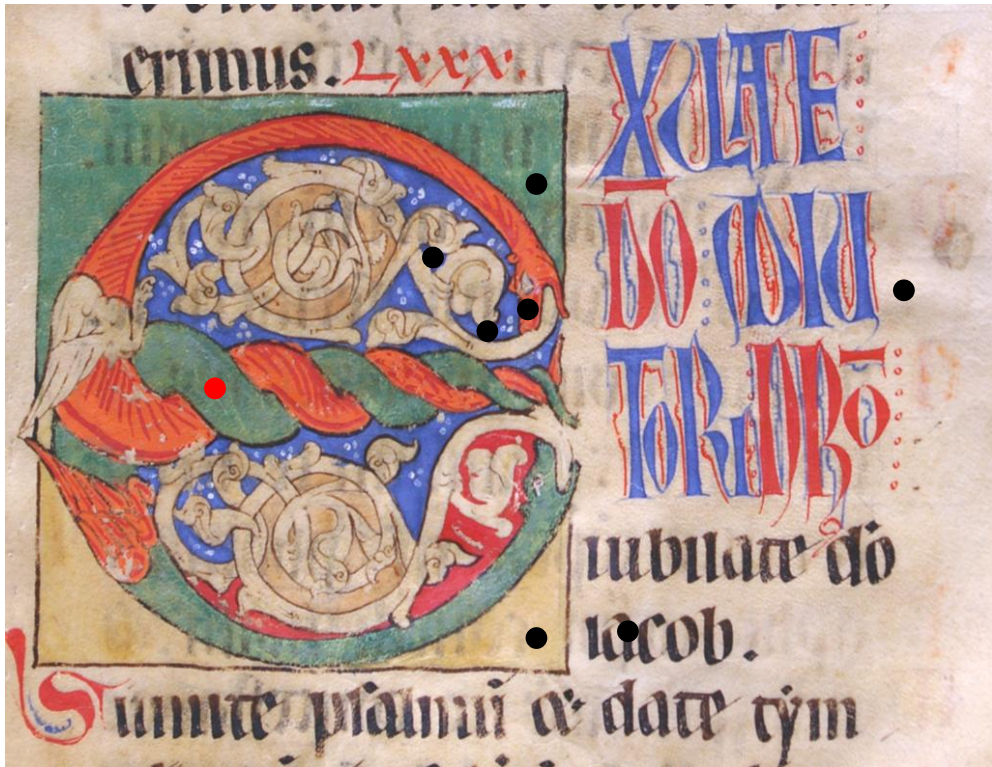 erimus. Lxxx.
EXULTATE
D̄O ADIU
TORI NRŌ
iubilate dō
iacob.
Sumite psalmū & date tẏm